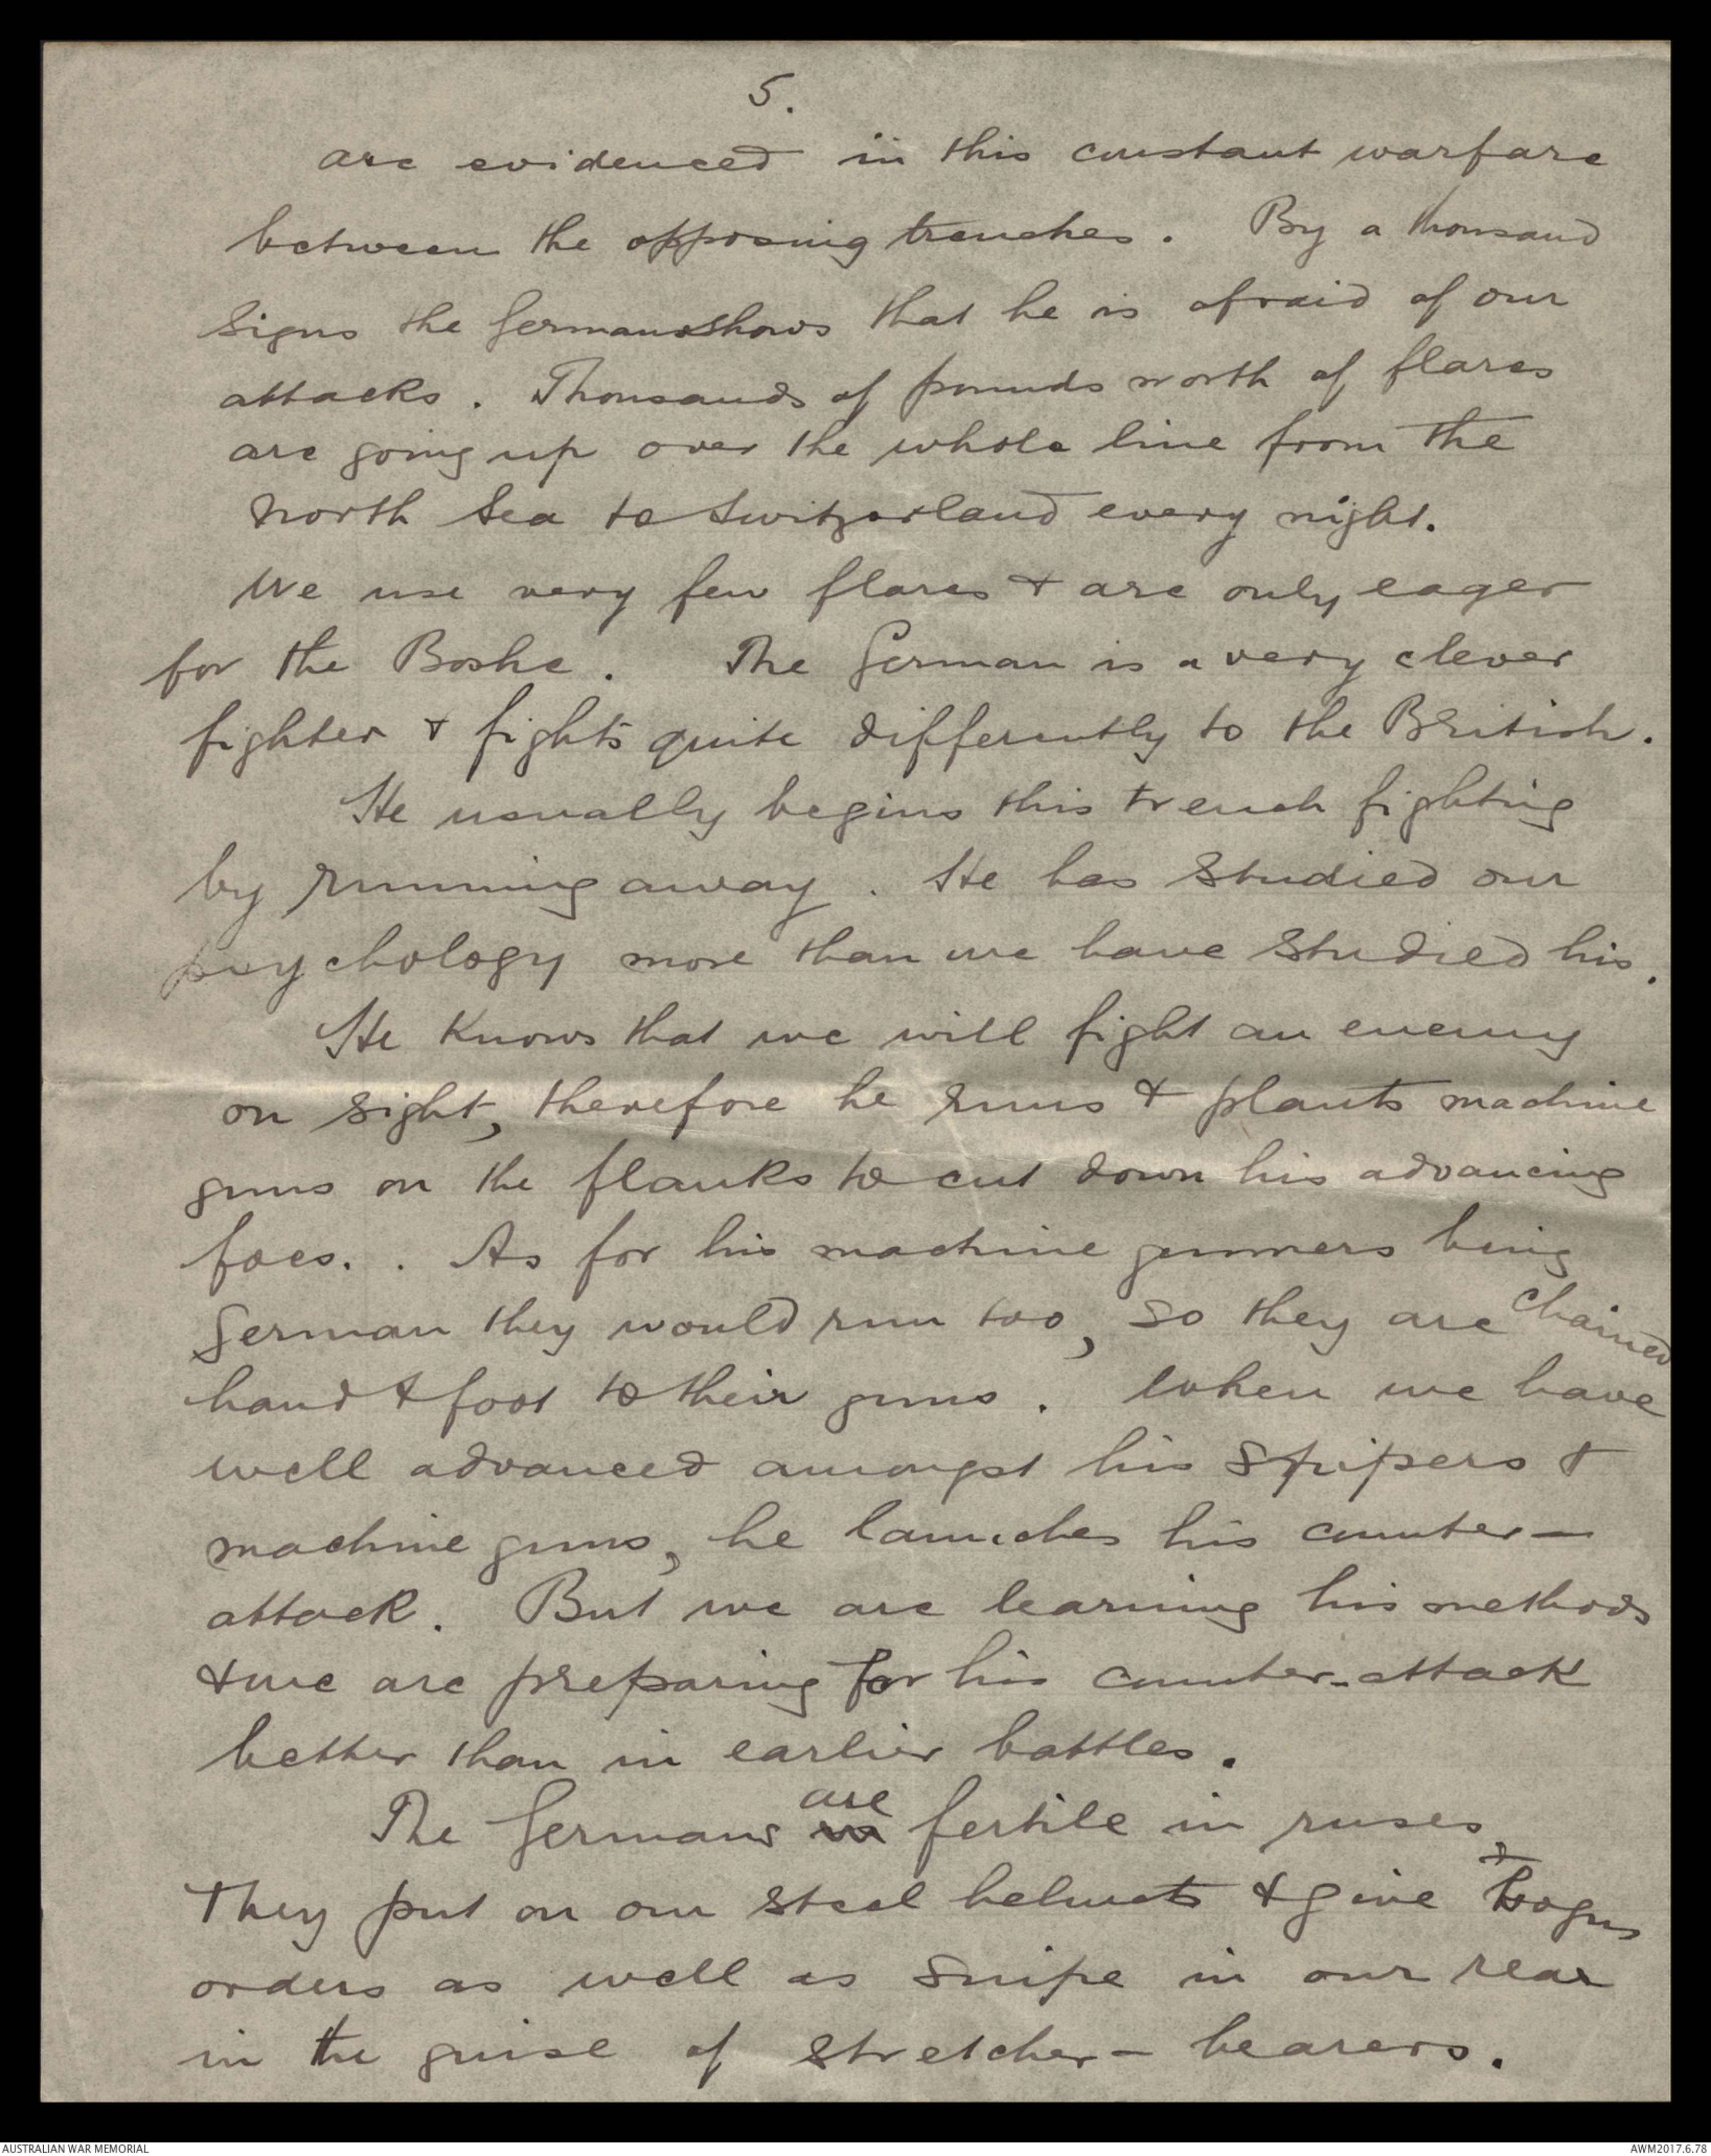 5.
are evidenced in this constant warfare
between the opposing trenches. By a thousand
signs the German shows that he is afraid of our
attacks. Thousands of pounds worth of flares
are going up over the whole line from the
North Sea to Switzerland every night.
We use very few flares & are only eager
for the Boshe. The German is a very clever
fighter & fights quite differently to the British.
He usually begins this trench fighting
by running away. He has studied our
psychology more than we have studied his.
He knows that we will fight an enemy
on sight, therefore he runs & plants machine
guns on the flanks to cut down his advancing
foes. . As for his machine gunners being
German they would run too, so they are chained
hand & foot to their guns. When we have
well advanced amongst his snipers &
machine guns, he launches his counter-
attack. But we are learning his methods
& we are preparing for his counter-attack
better than in earlier battles.
The Germans are fertile in ruses.
They put on our steel helmets & give bogus
orders as well as snipe in our rear
in the guise of stretcher-bearers.
AUSTRALIAN WAR MEMORIAL
AWM2017.6.78